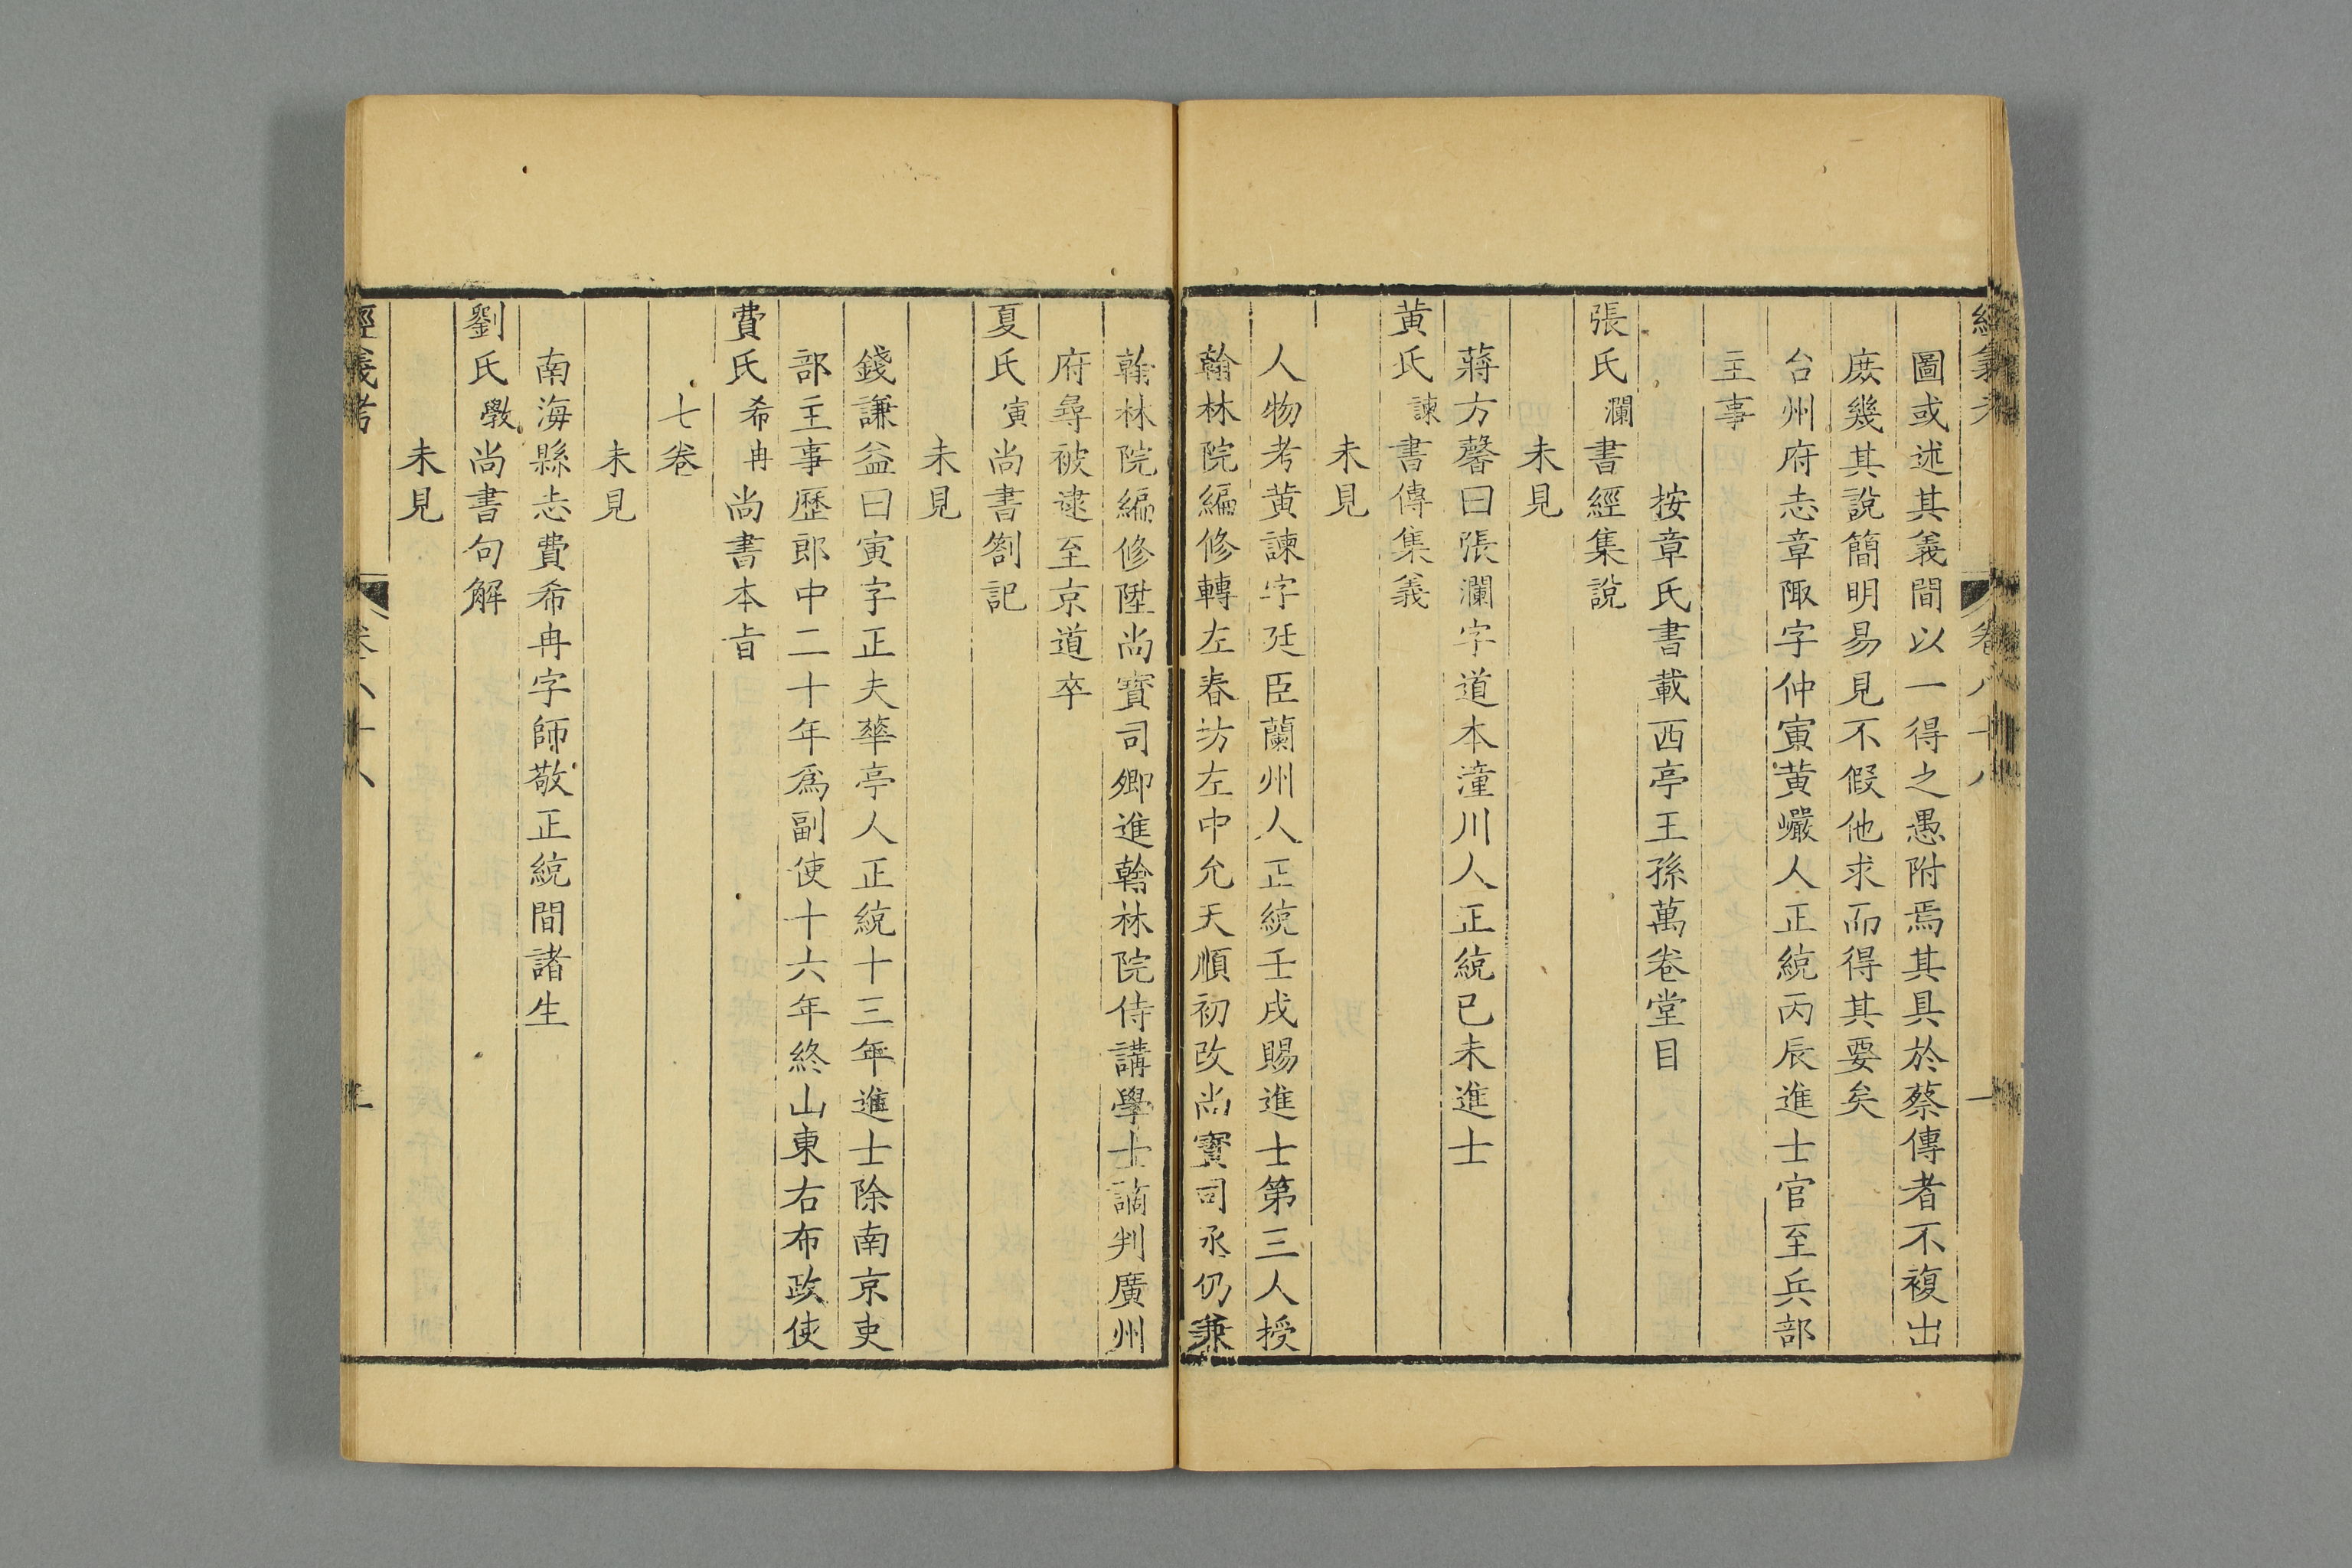 經義考 卷八十八 一
圖或述其義間以一得之愚附焉其具於蔡傳者不複出
庶幾其說簡明易見不假他求而得其要矣
台州府志章陬字仲寅黃巖人正統丙辰進士官至兵部
主事
按章氏書載西亭王孫萬卷堂目
張氏瀾書經集說
未見
蔣方馨曰張瀾字道本潼川人正統已未進士
黃氏諫書傳集義
未見
人物考黃諫字廷臣蘭州人正統壬戌賜進士第三人授
翰林院編修轉左春坊左中允天順初改尚寳司丞仍兼
翰林院編修陞尚寳司卿進翰林院侍講學士謫判廣州
府尋被逮至京道卒
夏氏寅尚書劄記
未見
錢謙益曰寅字正夫華亭人正統十三年進士除南京吏
部主事歷郎中二十年為副使十六年終山東右布政使
費氏希冉尚書本旨
七卷
未見
南海縣志費希冉字師敬正統間諸生
劉氏斆尚書句解
未見
經義考 卷八十八